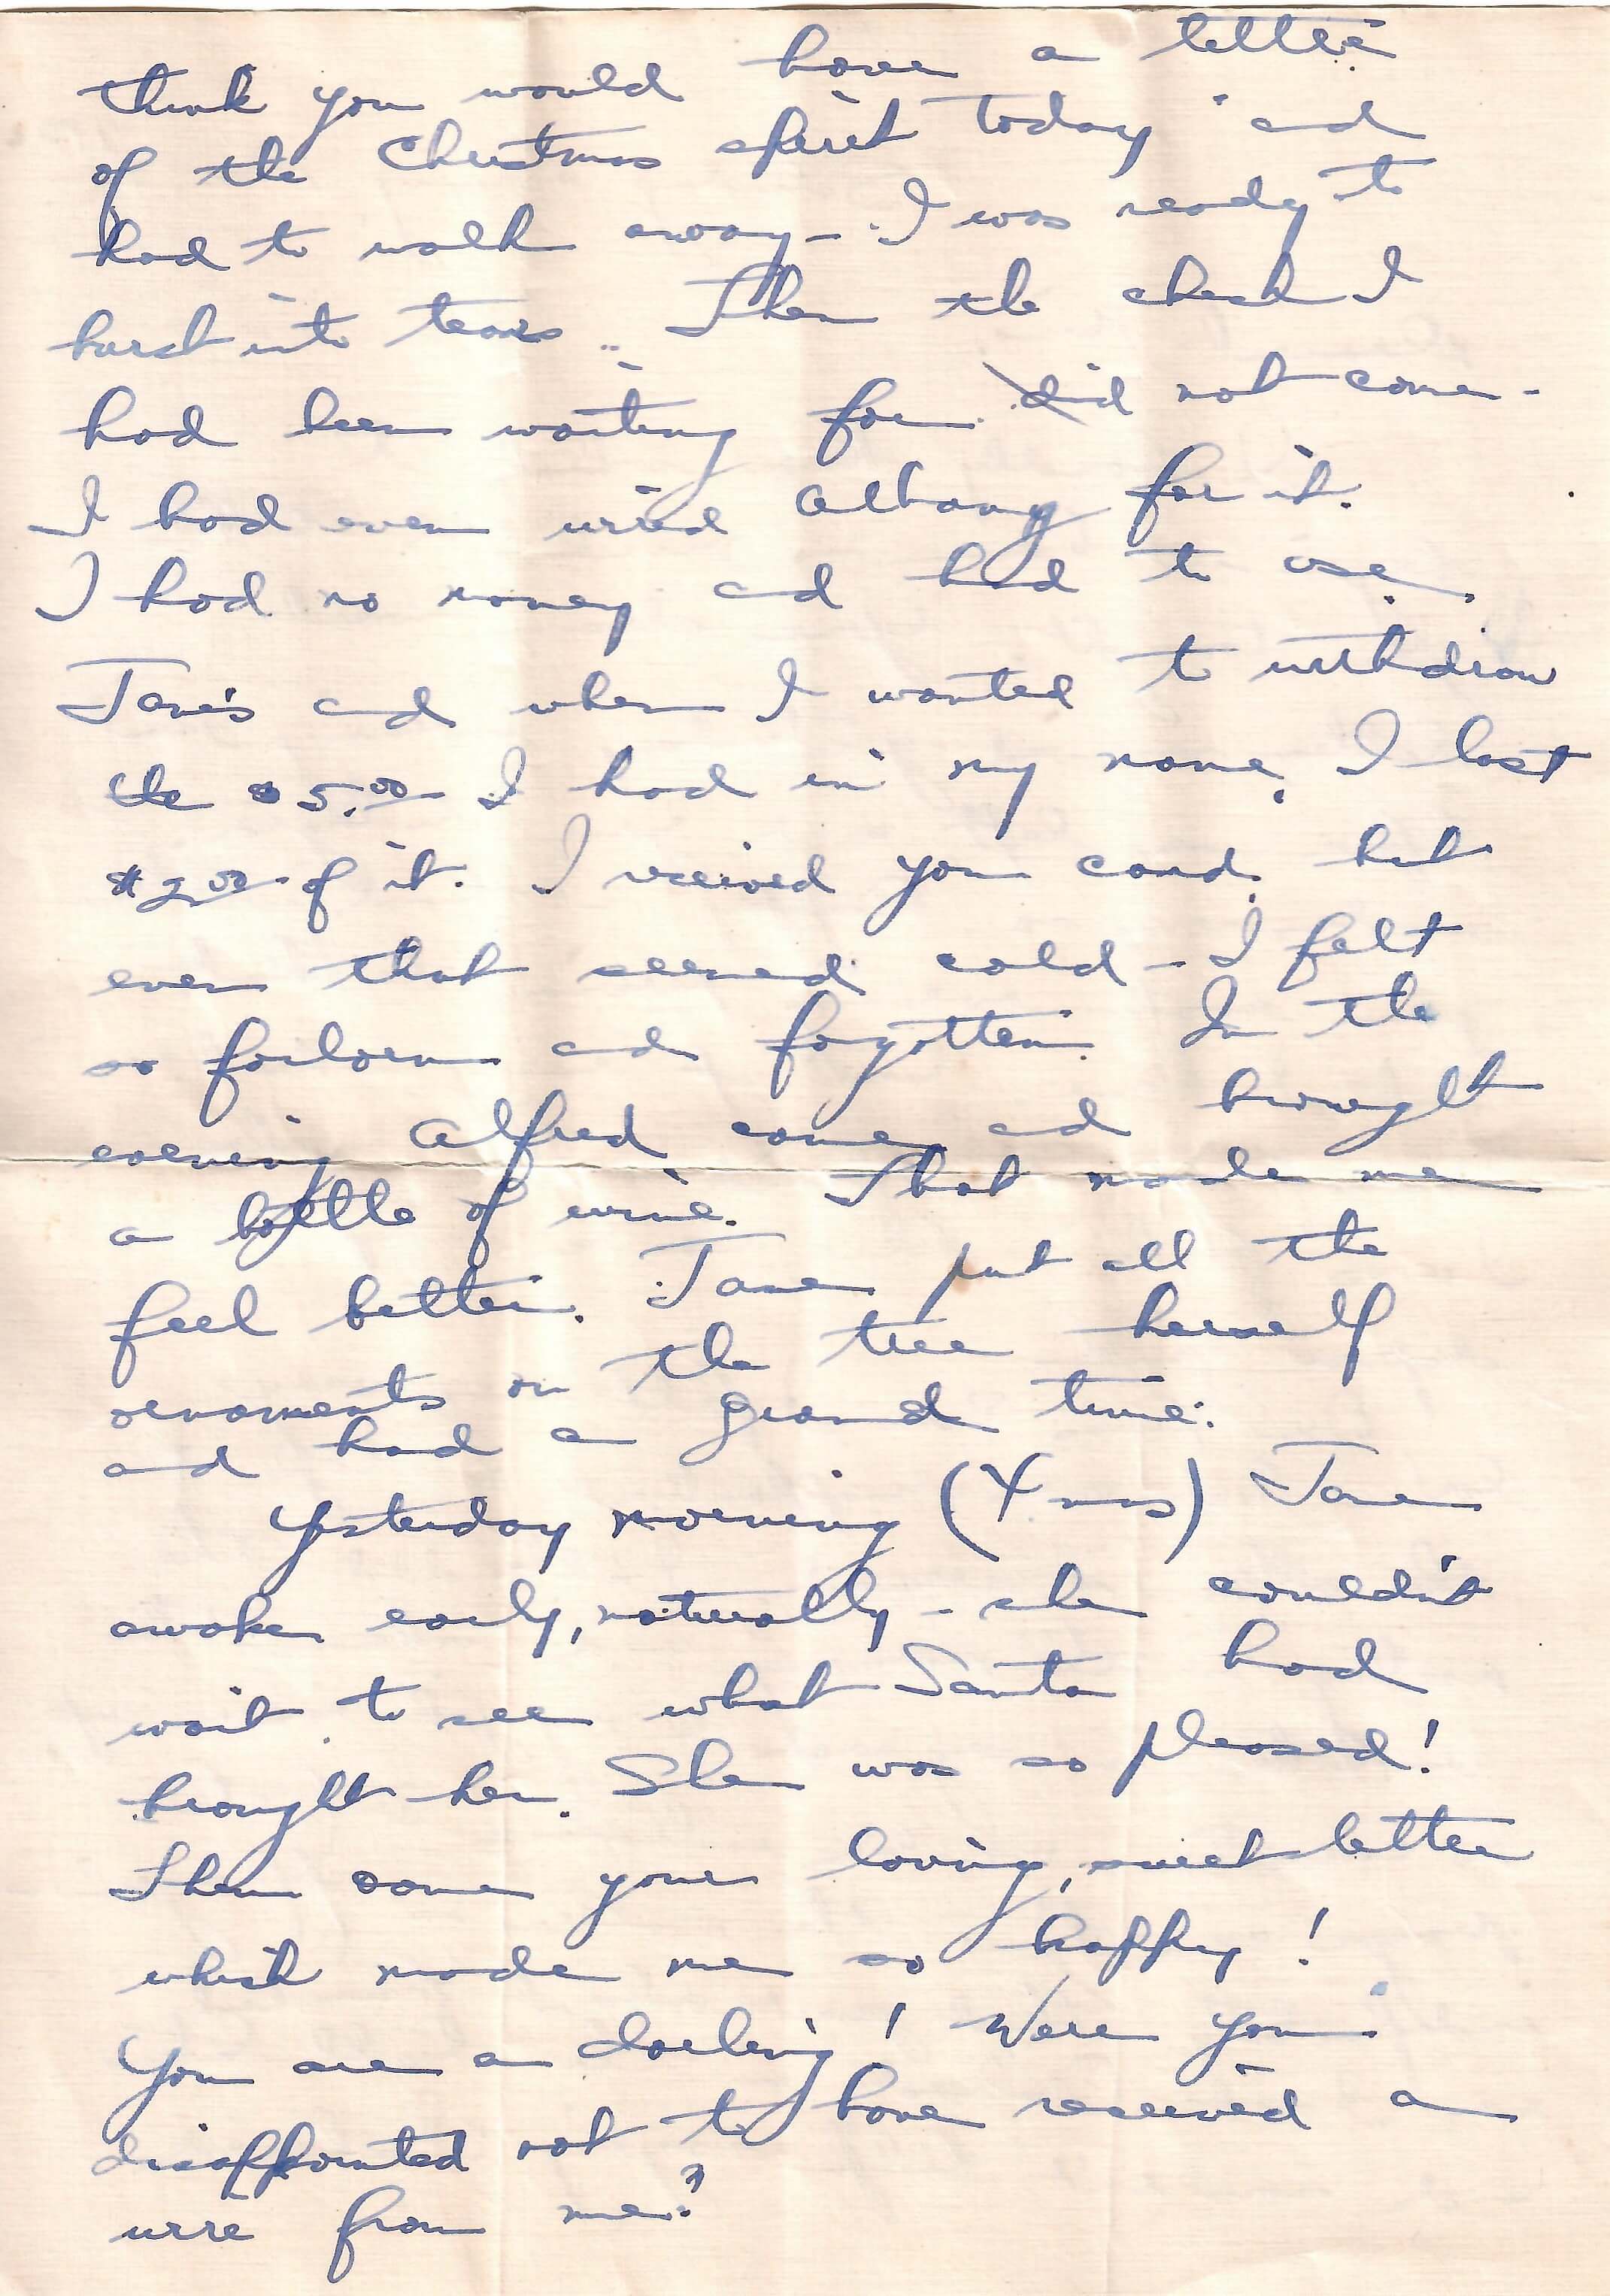 think you would have a little
of the Christmas spirit today" and
had to walk away - I was ready to
burst into tears.. Then the check I
had been waiting for did not come -
I had even wired Albany for it.
I had no money and had to use
Jane's and when I wanted to withdraw
the $5.00 I had in my name, I lost
$2.00 of it. I received your card, but
even that seemed cold - I felt
so forlorn and forgotten. In the
evening Alfred came, and brought
a bottle of wine. That made me
feel better. Jane put all the
ornaments on the tree herself
and had a grand time.
Yesterday morning (Xmas) Jane
awoke early, naturally - she couldn't
wait to see what Santa had
brought her. She was so pleased!
Then came your loving, sweet letter
which made me so happy!
You are a darling! Were you
disappointed not to have received a
wire from me?